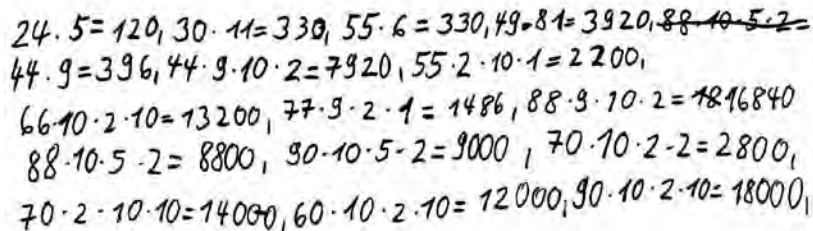 24·5=120, 30·11=330, 55·6=330, 49·81=3920, 88·10·5·2=
44·9=396, 44·9·10·2=7920, 55·2·10·1=2200,
66·10·2·10=13200, 77·9·2·1=1486, 88·9·10·2=16840
88·10·5·2=8800, 90·10·5·2=9000, 70·10·2·2=2800,
70·2·10·10=14000, 60·10·2·10=12000, 90·10·2·10=18000,